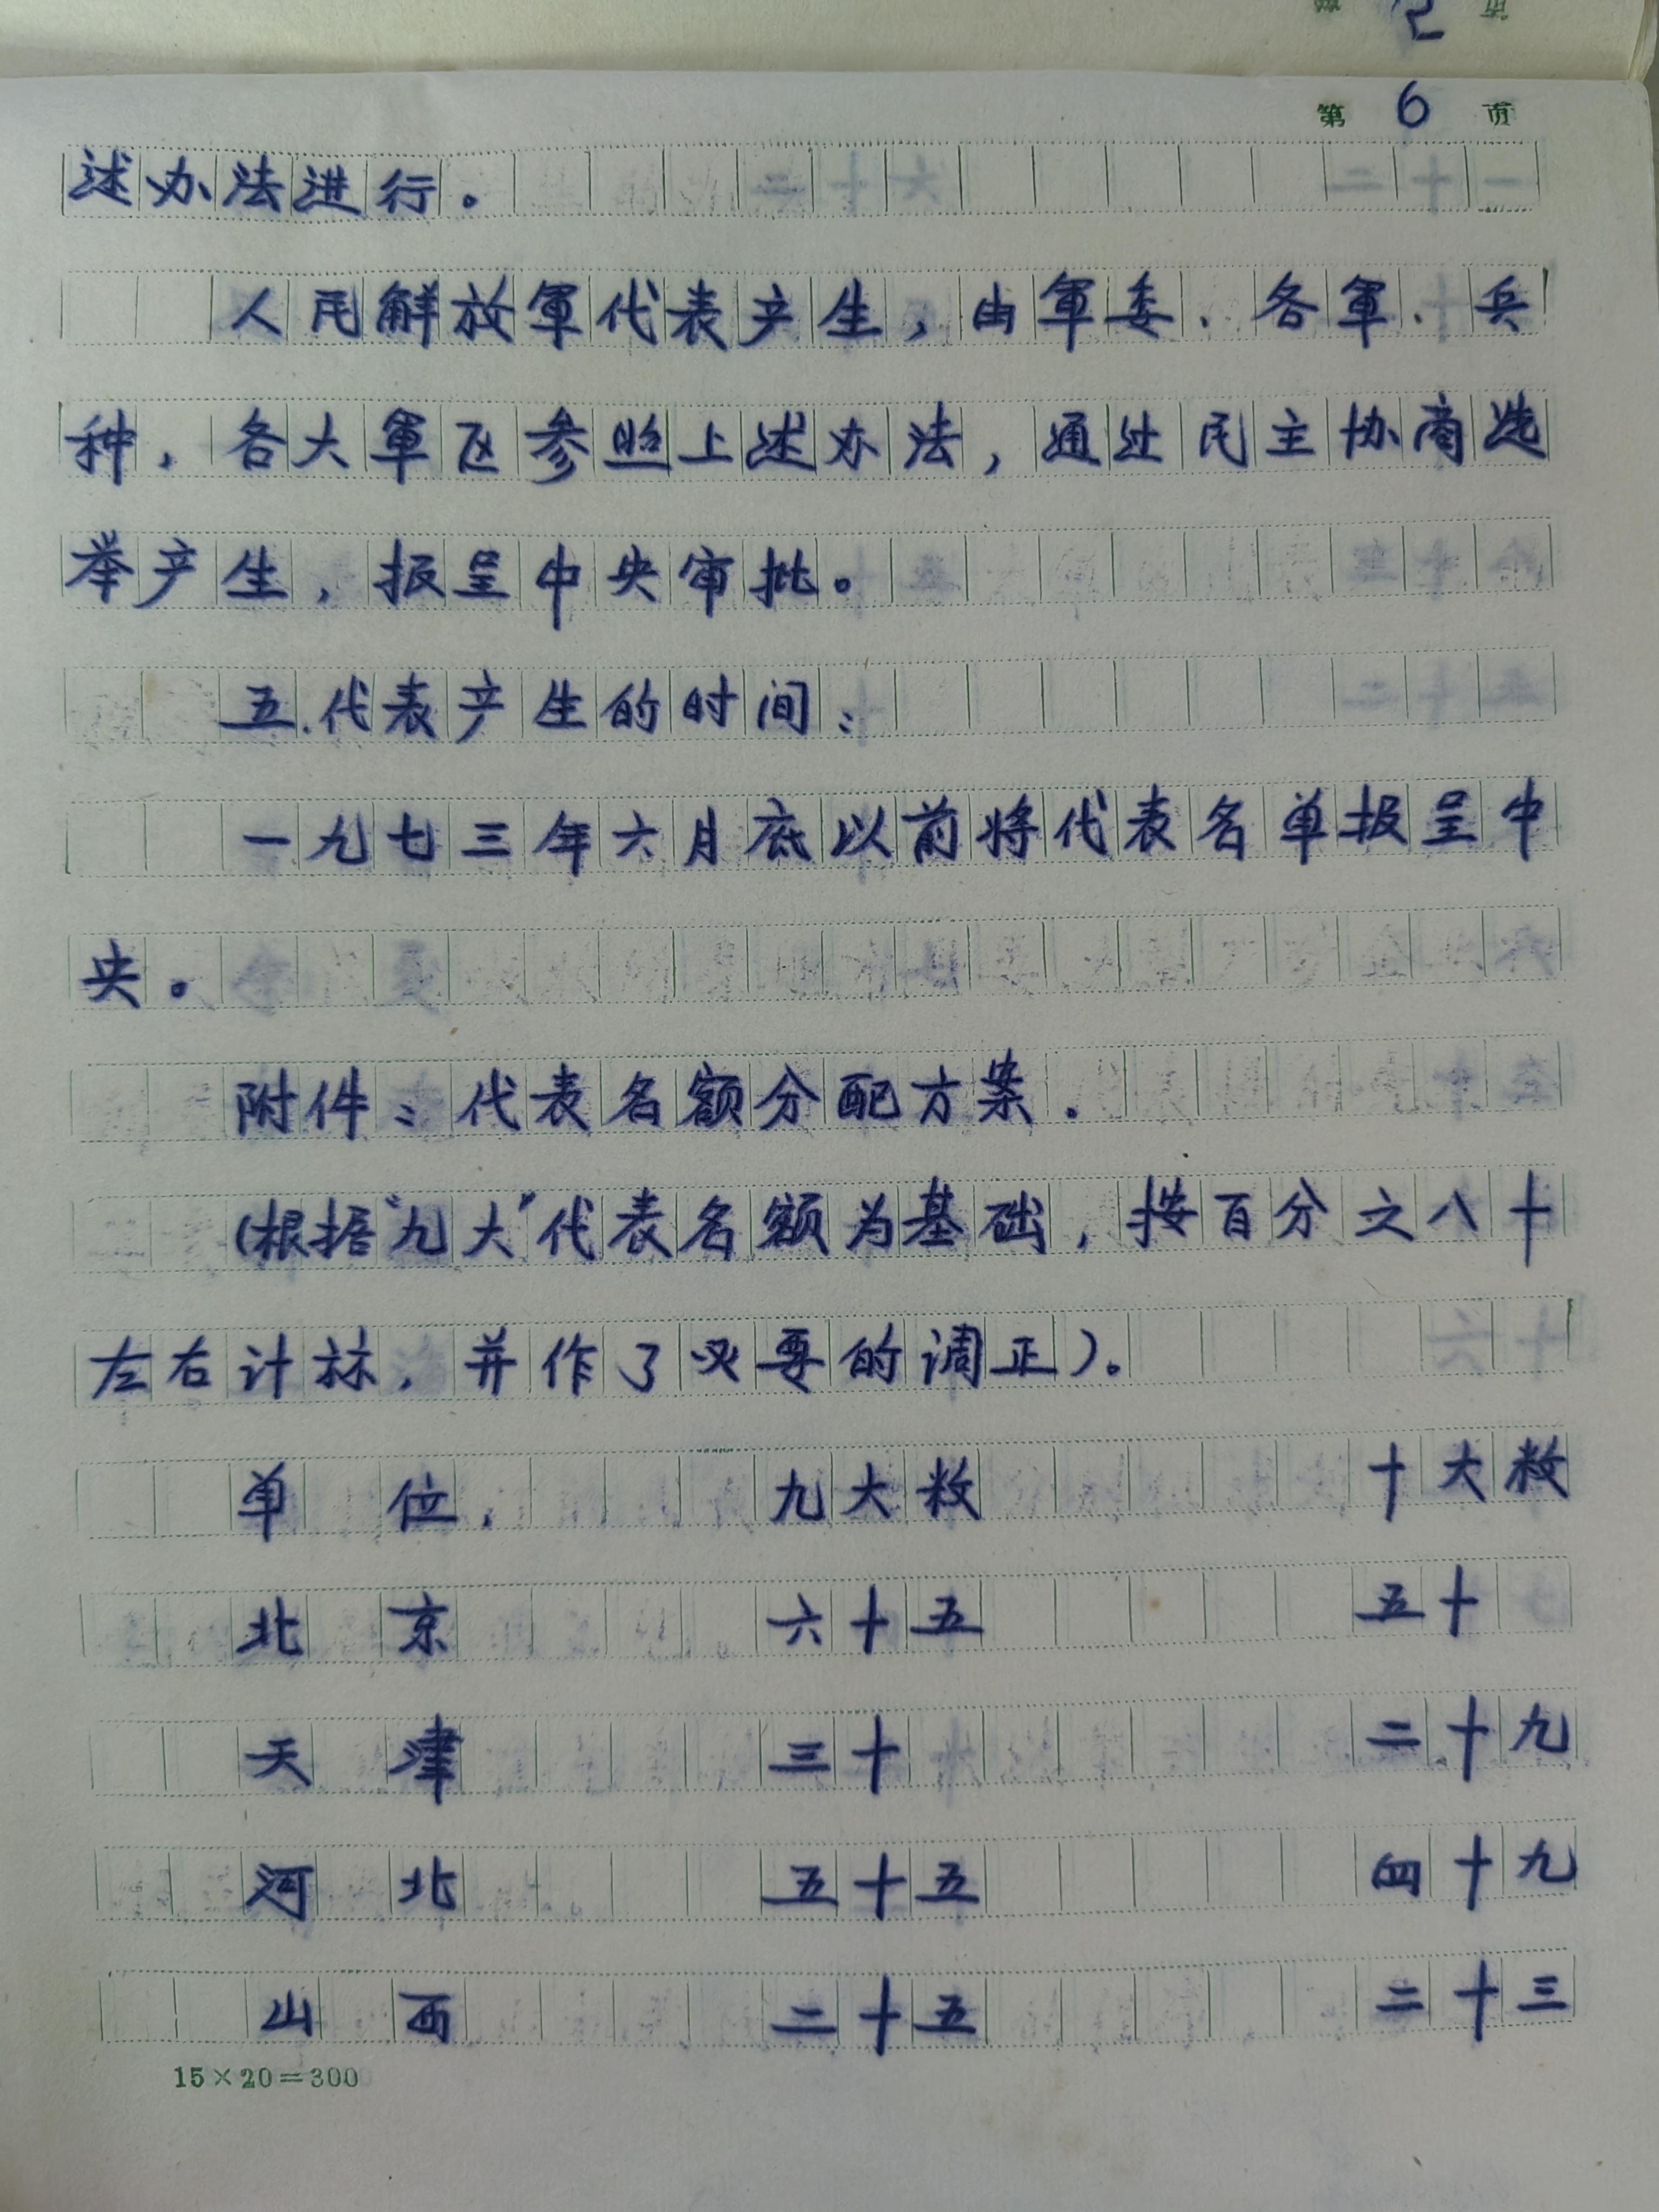 第 6 页
述办法进行。
人民解放軍代表产生，由軍委、各軍、兵
种，各大軍区参照上述办法，通过民主协商选
举产生，报呈中央审批。
五.代表产生的时间：
一九七三年六月底以前将代表名单报呈中
央。
附件：代表名额分配方案.
(根据"九大"代表名额为基础，按百分之八十
左右计标，并作了必要的调正)。
单 位. 九大数 十大数
北 京 六十五 五十
天 津 三十 二十九
河 北 五十五 四十九
山 西 二十五 二十三
15×20=300